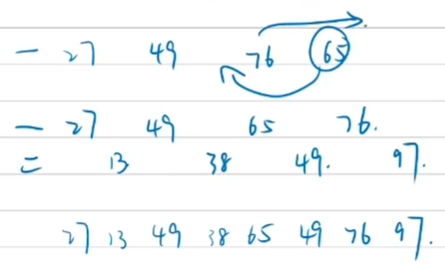 一 27 49 76 65
一 27 49 65 76.
二 13 38 49. 97.
27 13 49 38 65 49 76 97.